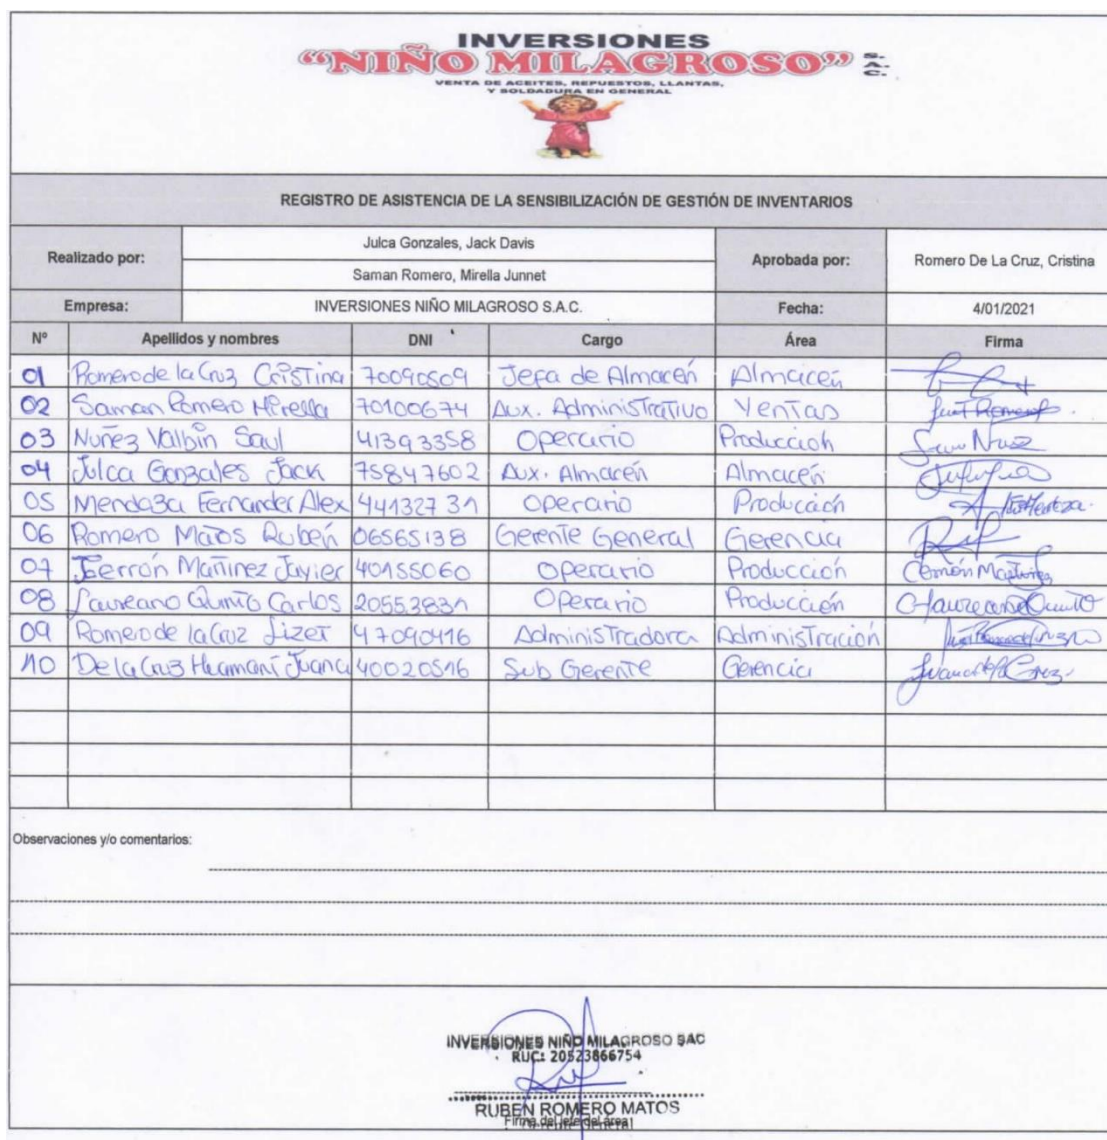 INVERSIONES
“NIÑO MILAGROSO” S.A.C.
VENTA DE ACEITES, REPUESTOS, LLANTAS,
Y SOLDADURA EN GENERAL
REGISTRO DE ASISTENCIA DE LA SENSIBILIZACIÓN DE GESTIÓN DE INVENTARIOS
Realizado por: Julca Gonzales, Jack Davis Aprobada por: Romero De La Cruz, Cristina
Saman Romero, Mirella Junnet
Empresa: INVERSIONES NIÑO MILAGROSO S.A.C. Fecha: 4/01/2021
Nº Apellidos y nombres DNI Cargo Área Firma
01 Romero de la Cruz Cristina 70090509 Jefa de Almacén Almacén
02 Saman Romero Mirella 70100674 Aux. Administrativo Ventas
03 Nuñez Valbin Saul 41393358 Operario Producción Saul Nuñez
04 Julca Gonzales Jack 75847602 Aux. Almacén Almacén
05 Mendoza Fernander Alex 44132731 Operario Producción
06 Romero Matos Rubén 06565138 Gerente General Gerencia
07 Martinez Javier 40155060 Operario Producción Martinez
08 Laureano Quinto Carlos 20553831 Operario Producción C Laureano Quinto
09 Romero de la Cruz Lizet 47090416 Administradora Administración
10 De la Cruz Huamani Juana 40020516 Sub Gerente Gerencia Juana de la Cruz
Observaciones y/o comentarios:
INVERSIONES NIÑO MILAGROSO SAC
RUC: 20523866754
RUBEN ROMERO MATOS
Gerente General
Firma del jefe del área